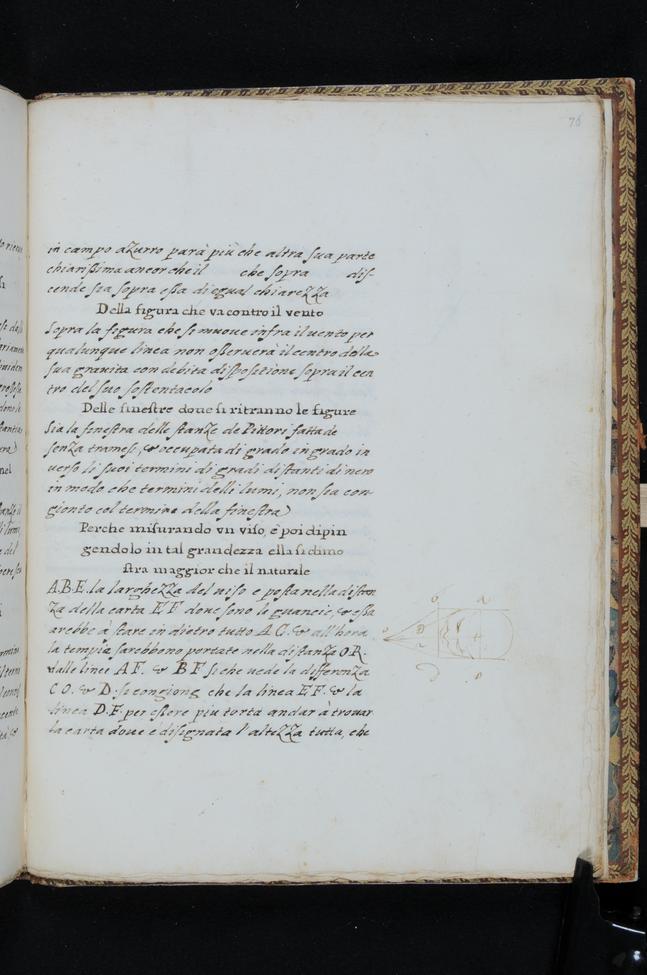 76
in campo aZurro parà più che altra sua parte
chiarissima ancor che il che sopra dis
cende sia sopra essa di egual chiareZZa
Della figura che va contro il vento
Sopra la figura che si muove infra il vento per
qualunque linea non osservera il centro della
sua gravita con debita dispositione sopra il cen
tro del suo sostentacolo
Delle finestre doue si ritranno le figure
Sia la finestra delle stanZe de Pittori fatta de
senza tramesi, & occupata di grado in grado in
verso li suoi termini di gradi distanti di nero
in modo che termini delli lumi, non sia con-
gionto col termine della finestra
Perche misurando vn viso, e poi dipin
gendolo in tal grandezza ella si dimo
stra maggior che il naturale
A.B.E. la larghezza del viso e posta nella distan
Za della carta E F doue sono le guancie, & essa
arebbe à stare in dietro tutto A C. & all'hora
la tempia sarebbono portate nella distanZa O R.
dalle linee A F. & B F si che vede la differenZa
C O. & D. si congiong che la linea E F. & la
linea D.F. per essere piu torta andar à trouar
la carta doue e disignata l'alteZZa tutta, che